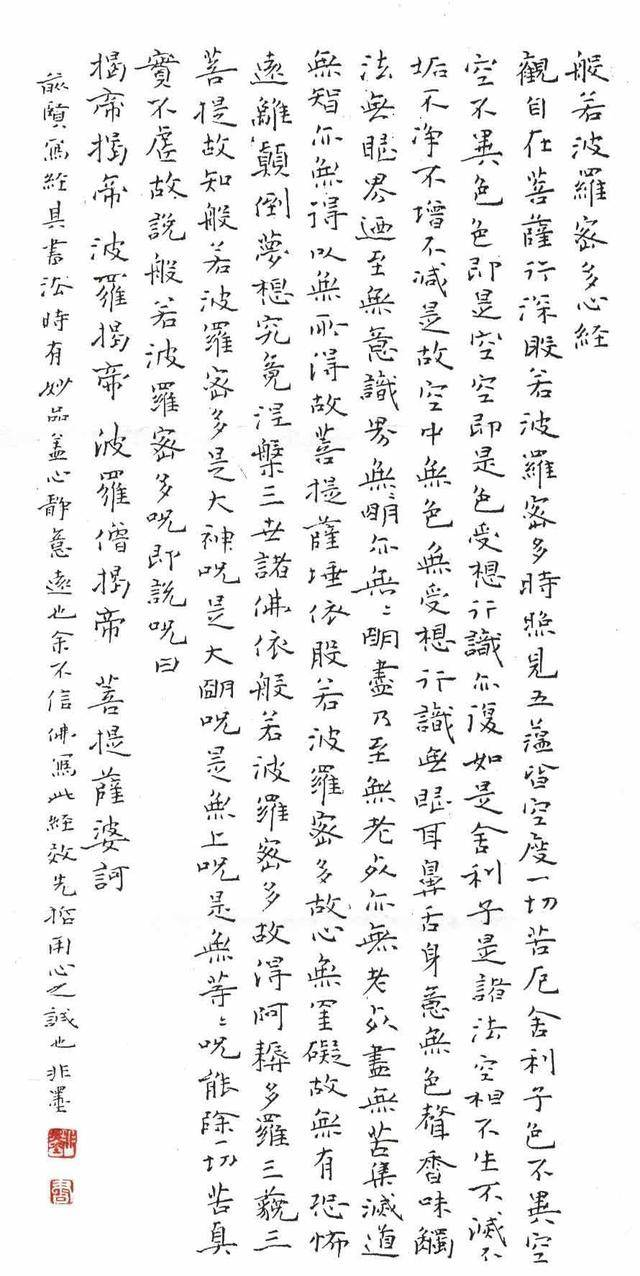 般若波羅密多心経
觀自在菩薩行深般若波羅密多時照見五蘊皆空度一切苦厄舍利子色不異空
空不異色色即是空空即是色受想行識亦復如是舍利子是諸法空相不生不滅不
垢不净不增不減是故空中無色無受想行識無眼耳鼻舌身意無色聲香味觸
法無眼界迺至無意識界無明亦無〻明盡乃至無老死亦無老死盡無苦集滅道
無智亦無得以無所得故菩提薩埵依般若波羅密多故心無罣礙故無有恐怖
遠離顛倒夢想究竟涅槃三世諸佛依般若波羅密多故得阿耨多羅三藐三
菩提故知般若波羅密多是大神咒是大明咒是無上咒是無等〻咒能除一切苦真
實不虛故說般若波羅密多咒即說咒曰
揭帝揭帝 波羅揭帝 波羅僧揭帝 菩提薩婆訶
前賢寫経其書法時有妙品盖心靜意遠也余不信佛寫此経效先哲用心之誠也 非墨